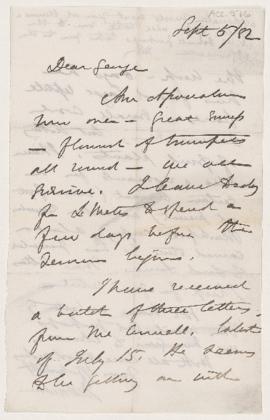 Sept 5/82
Dear George
Our
now over - Great
- flourish of trumpets
all round - we all
survive. I leave
for to spend a
few days before the
Sessions begins.
I have received
a batch of three letters
from Mr Connell. Latest
of July 15. He seems
to be getting on with